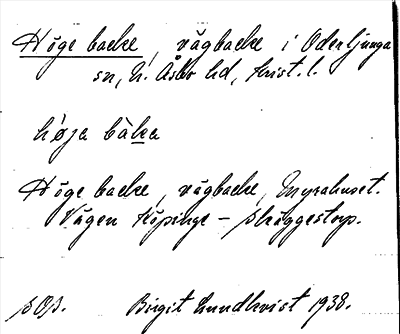 Höge backe, vägbacke i Oderljunga
sn, N. Åsbo hd, Krist. l.
hǿja bàka
Höge backe, vägbacke, Myrahuset.
Vägen Köpinge - Skäggestorp.
Birgit Lundkvist 1938.